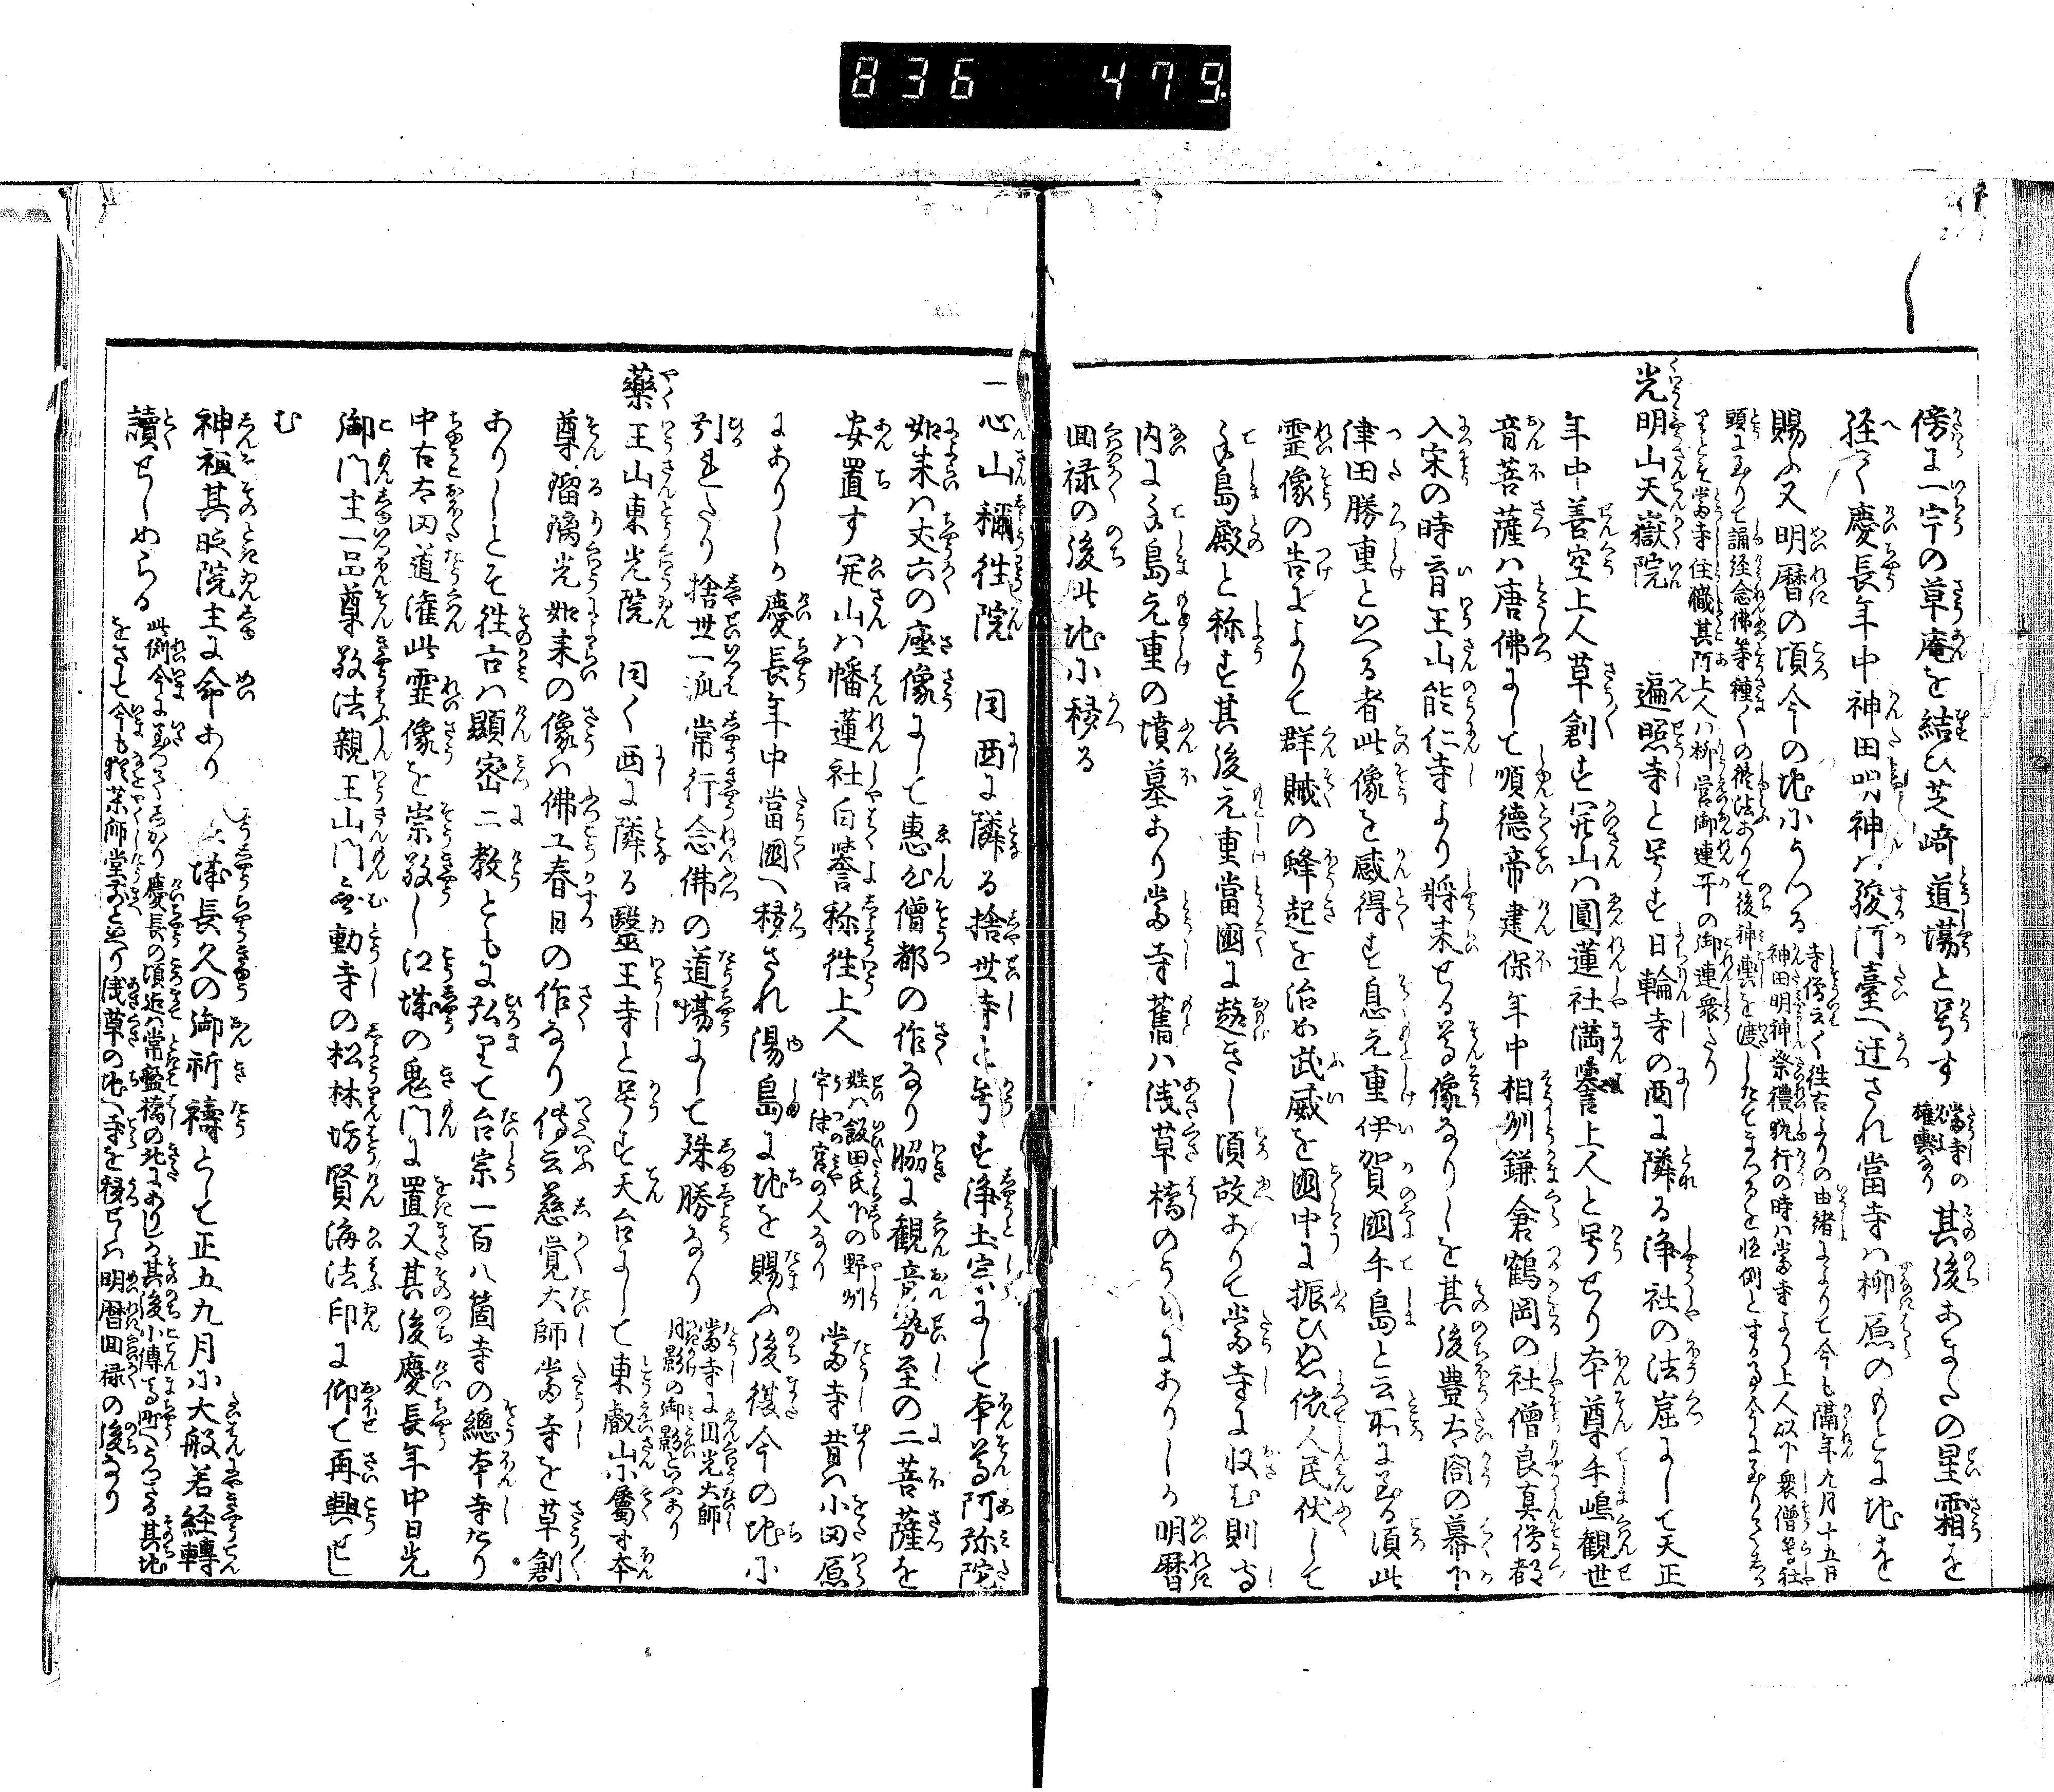 836 479
傍に一宇の草庵を結ひ芝崎道場と号す 當寺の権輿なり 其後あまたの星霜を
経て慶長年中神田明神は駿河臺へ迁され當寺は柳原のもとに地を
賜ふ又明暦の頃今の地にうつる 寺僧云く往古よりの由緒によりて今も隔年九月十五日
神田明神祭禮執行の時は當寺より上人以下衆僧等社
頭に至りて誦経念佛等種々の修法ありて後神輿を渡したてまつるを恒例とする
當寺住職其阿上人は柳営御連哥の御連衆たり
光明山天嶽院 遍照寺と号す日輪寺の西に隣る浄社の法窟にして天正
年中善空上人草創す開山は圓蓮社満誉上人と号せり本尊手嶋観世
音菩薩は唐佛にして順徳帝建保年中相州鎌倉鶴岡の社僧良真僧都
入宋の時育王山能仁寺より将来せる尊像なりしを其後豊太閤の幕下
津田勝重といへる者此像を感得す息元重伊賀國手島と云所に至る頃此
霊像の告によりて群賊の蜂起を治め武威を國中に振ひぬ依人民伏して
手島殿と称す其後元重當國に趣きし頃故ありて當寺に収む則寺
内に手島元重の墳墓あり當寺舊は浅草橋のうちにありしか明暦
回禄の後此地に移る
一心山稱往院 同西に隣る捨世寺と号す浄土宗にして本尊阿弥陀
如来は丈六の座像にして恵心僧都の作なり脇に観音勢至の二菩薩を
安置す開山は幡蓮社白誉称往上人 姓は飯田氏下の野州
宇津宮の人なり 當寺昔は小田原
にありしか慶長年中當國へ移され湯島に地を賜ふ後復今の地に
引れたり捨世一流常行念佛の道場にして殊勝なり 當寺に円光大師
月影の御影といふあり
藥王山東光院 同く西に隣る醫王寺と号す天台にして東叡山に屬す本
尊瑠璃光如来の像は佛工春日の作なり傳云慈覚大師當寺を草創
ありしとそ往古は顯密二教ともに弘まて台宗一百八箇寺の總本寺たり
中古太田道潅此霊像を崇敬し江城の鬼門に置又其後慶長年中日光
御門主一品尊敬法親王山門無動寺の松林坊賢海法印に仰て再興せし
む
神祖其照院主に命あり 江城長久の御祈禱として正五九月に大般若経轉
讀せしめらる 此例今に至つてしかり慶長の頃迄は常盤橋の北にありしか其後小傳馬町へうつさる其地
をさして今も猶薬師堂前と云り浅草の地へ寺を移せしは明暦回禄の後なり